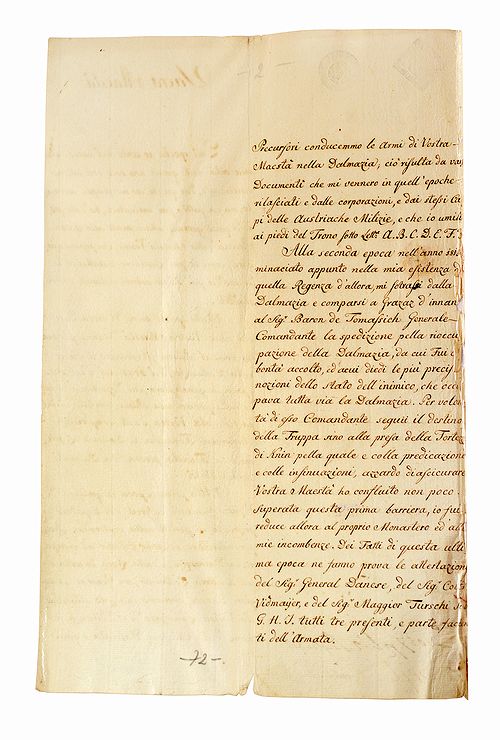 - 2 -
Precursori conducemmo le Armi di Vostra
Maestà nella Dalmazia; ciò risulta da
Documenti che mi vennero in quell'epoche
rilasciati e dalle corporazioni, e dai stessi
pi delle Austriache Milizie, e che io
ai piedi del Trono sotto Lettᵉ A. B. C. D. E. F.
Alla seconda epoca nell'anno
minaciato appunto nella mia esistenza
quella Regenza d'allora, mi sotrassi dalla
Dalmazia e comparsi a Grazaz d'innan
al Sigʳ Baron de Tomassich Generale-
Comandante la spedizione pella rioccu
pazione della Dalmazia, da cui Fui
bontà accolto, ed a cui diedi le più
nozioni dello stato dell'inimico, che
pava tutta via la Dalmazia. Per
tà di esso Comandante seguii il destino
della Truppa sino alla presa della
di Knin pella quale e colla predicazione
e colle insinuazioni, azzardo di assicurare
Vostra Maestà ho confluito non poco.
Superata questa prima barriera, io fui
reduce allora al proprio Monastero ed
mie incombenze. Dei Fatti di questa
ma epoca ne fanno prova le attestazion
del Sigʳ General Dănese, del Sigʳ
Vidmajer, e del Sigʳ Maggior Turschi
G. H. I. tutti tre presenti, e parte
ti dell'Armata.
-72-